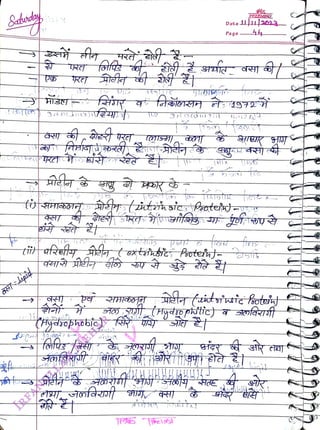 Saturday
Date 11/11/2023
Page 44
→ इसमें तीन परतें होती है -
- दो परत लिपिड की होती है अर्थात - वसा की।
- एक परत प्रोटीन की होती है।
→ मॉडल - सिंगर व निकोलसन ने 1972 में
दिया।
वसा की दोहरी परत प्लाज्मा कला के आधार भाग
का निर्माण करती है प्रोटीन के अणु वसा की
परत में धंसे रहते है।
→ प्रोटीन के अणु दो प्रकार के -
(i) समाकलन प्रोटीन (Intrinsic Protein) -
वसा की दोहरी परत में आंशिक या पूर्ण रूप से
धंसे रहते है।
(ii) परिधीय प्रोटीन (extrinsic Protein) -
वसा से प्रोटीन ढीले रूप से जुड़े होते है।
वसा - Lipid
→ वसा एवं समाकलन प्रोटीन (intrinsic Protein)
दोनो में जल रागी (Hydrophilic) व जलविरागी
(Hydrophobic) सिरे पाये जाते है।
→ लिपिड / वसा के जलरागी भाग, बाहर की ओर तथा
जलविरागी अंदर की ओर होते है।
→ प्रोटीन के जलरागी भाग जलीय सतह की ओर
तथा जलविरागी भाग, वसा के अंदर धंसे
होते है।